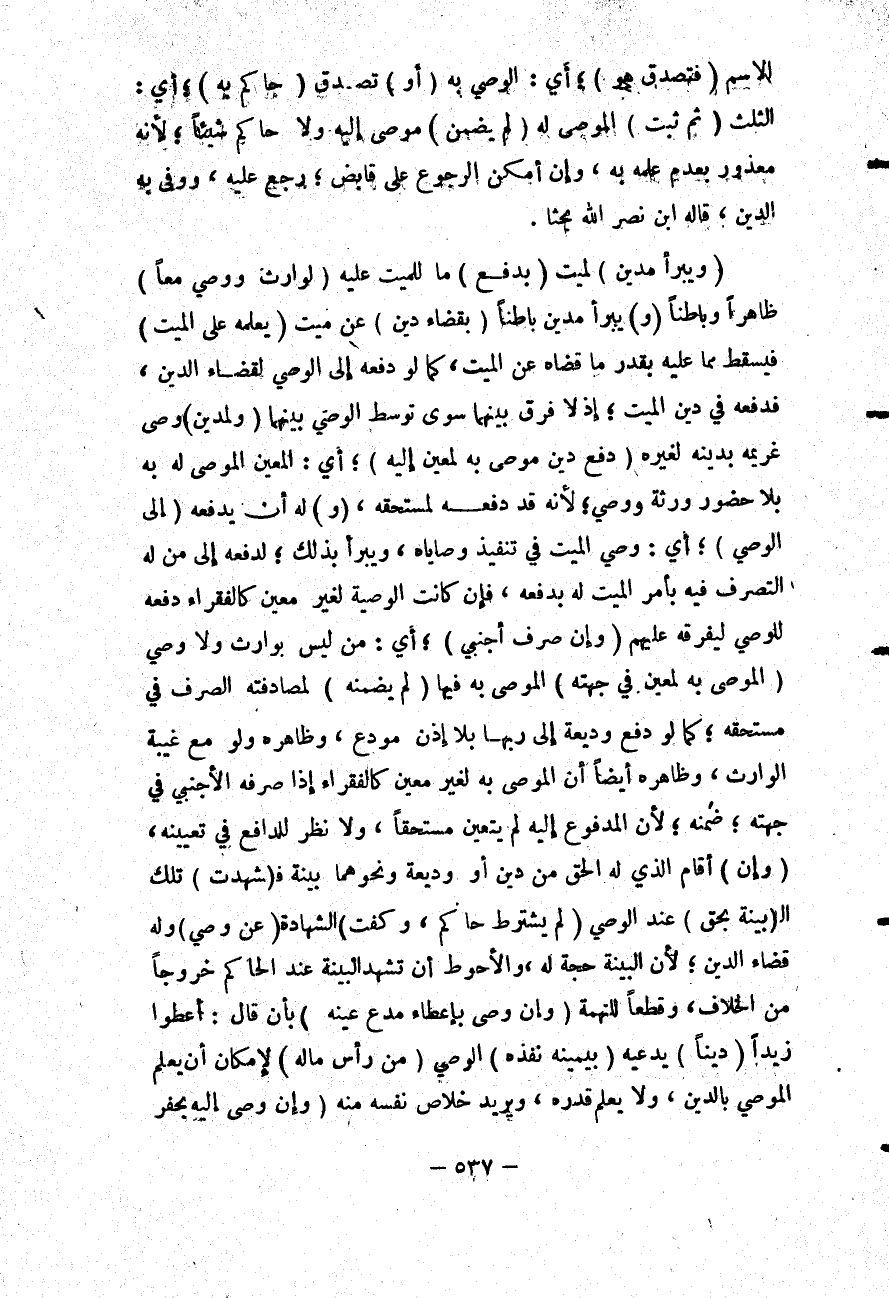 للاسم ( فتصدق هو ) ؛ أي : الوصي به ( أو ) تصدق ( حاكم به ) ؛ أي :
الثلث ( ثم ثبت ) الموصى له ( لم يضمن ) موصى إليه ولا حاكم شيئاً ؛ لأنه
معذور بعدم علمه به ، وإن أمكن الرجوع على قابض ؛ رجع عليه ، ووفى به
الدين ، قاله ابن نصر الله بحثا .
( ويبرأ مدين ) لميت ( بدفع ) ما للميت عليه ( لوارث ووصي معاً )
ظاهراً وباطناً ( و ) يبرأ مدين باطناً ( بقضاء دين ) عن ميت ( يعلمه على الميت )
فيسقط مما عليه بقدر ما قضاه عن الميت ، كما لو دفعه إلى الوصي لقضاء الدين ،
فدفعه في دين الميت ؛ إذ لا فرق بينهما سوى توسط الوصي بينهما ( ولمدين ) وصى
غريمه بدينه لغيره ( دفع دين موصى به لمعين إليه ) ؛ أي : المعين الموصى له به
بلا حضور ورثة ووصي ؛ لأنه قد دفعه لمستحقه ، ( و ) له أن يدفعه ( إلى
الوصي ) ؛ أي : وصي الميت في تنفيذ وصاياه ، ويبرأ بذلك ؛ لدفعه إلى من له
التصرف فيه بأمر الميت له بدفعه ، فإن كانت الوصية لغير معين كالفقراء دفعه
للوصي ليفرقه عليهم ( وإن صرف أجنبي ) ؛ أي : من ليس بوارث ولا وصي
( الموصى به لمعين في جهته ) الموصى به فيها ( لم يضمنه ) لمصادفته الصرف في
مستحقه ؛ كما لو دفع وديعة إلى ربها بلا إذن مودع ، وظاهره ولو مع غيبة
الوارث ، وظاهره أيضاً أن الموصى به لغير معين كالفقراء إذا صرفه الأجنبي في
جهته ؛ ضمنه ؛ لأن المدفوع إليه لم يتعين مستحقاً ، ولا نظر للدافع في تعيينه ،
( وإن ) أقام الذي له الحق من دين أو وديعة ونحوهما بينة فـ ( شهدت ) تلك
الـ ( بينة بحق ) عند الوصي ( لم يشترط حاكم ، وكفت ) الشهادة ( عن وصي ) وله
قضاء الدين ؛ لأن البينة حجة له ، والأحوط أن تشهد البينة عند الحاكم خروجاً
من الخلاف ، وقطعاً للتهمة ( وإن وصى بإعطاء مدع عينه ) بأن قال : أعطوا
زيداً ( ديناً ) يدعيه ( بيمينه نفذه ) الوصي ( من رأس ماله ) لإمكان أن يعلم
الموصي بالدين ، ولا يعلم قدره ، ويريد خلاص نفسه منه ( وإن وصى إليه بحفر
— ٥٣٧ —